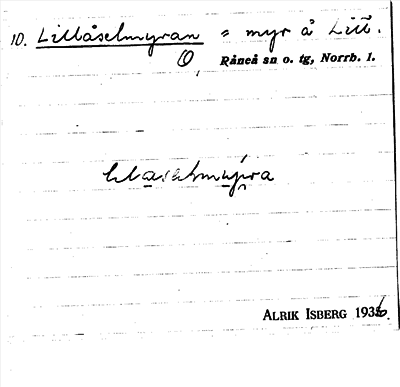 10. Lillåselmyran = myr å Lill.
O,
Råneå sn o. tg, Norrb. l.
ALRIK ISBERG 1936.